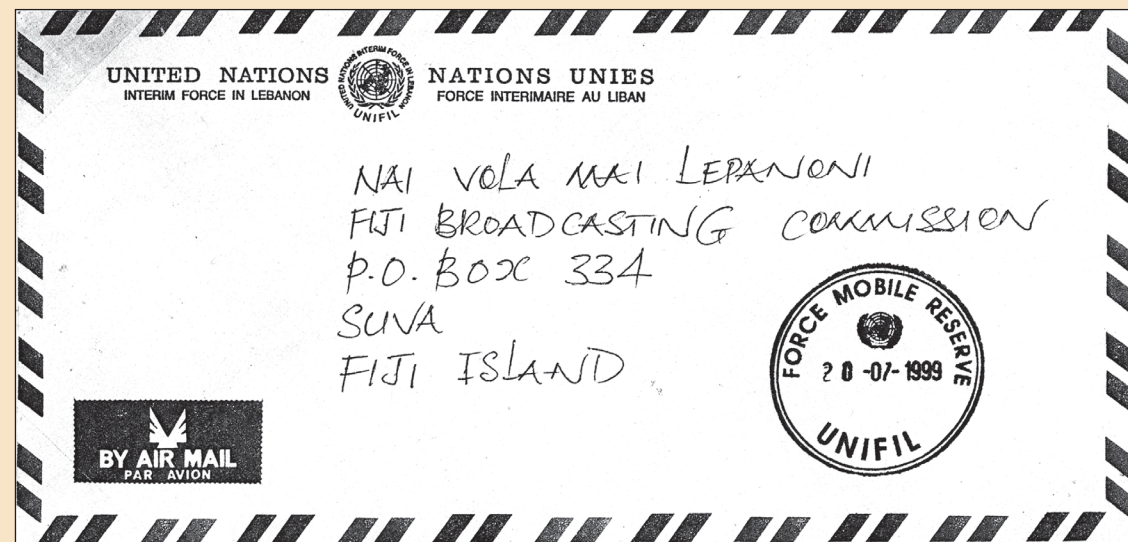 UNITED NATIONS
INTERIM FORCE IN LEBANON
UNITED NATIONS INTERIM FORCE IN LEBANON
UNIFIL
NATIONS UNIES
FORCE INTERIMAIRE AU LIBAN
NAI VOLA MAI LEPANONI
FIJI BROADCASTING COMMISSION
P.O. BOX 334
SUVA
FIJI ISLAND
FORCE MOBILE RESERVE
-07-1999
UNIFIL
BY AIR MAIL
PAR AVION